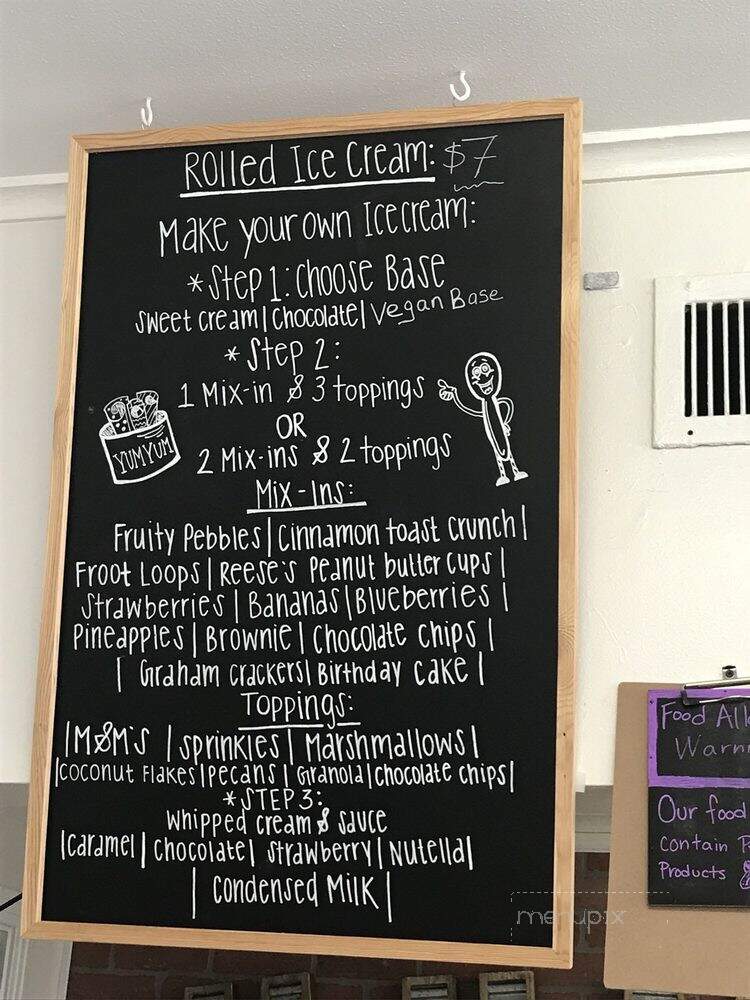 Rolled Ice Cream: $7
Make your own Icecream:
*Step 1: Choose Base
Sweet cream | Chocolate | Vegan Base
* Step 2:
1 Mix-in & 3 toppings
OR
2 Mix-ins & 2 toppings
YUMYUM
Mix-Ins:
Fruity Pebbles | Cinnamon toast Crunch |
Froot Loops | Reese's Peanut butter Cups |
Strawberries | Bananas | Blueberries |
Pineapples | Brownie | Chocolate Chips |
| Graham crackers | Birthday Cake |
Toppings:
| M&M'S | sprinkles | Marshmallows |
| Coconut Flakes | Pecans | Granola | Chocolate chips |
*STEP 3:
Whipped cream & sauce
| Caramel | Chocolate | Strawberry | Nutella |
| Condensed Milk |
Food
Our food
Contain
Products
menupix